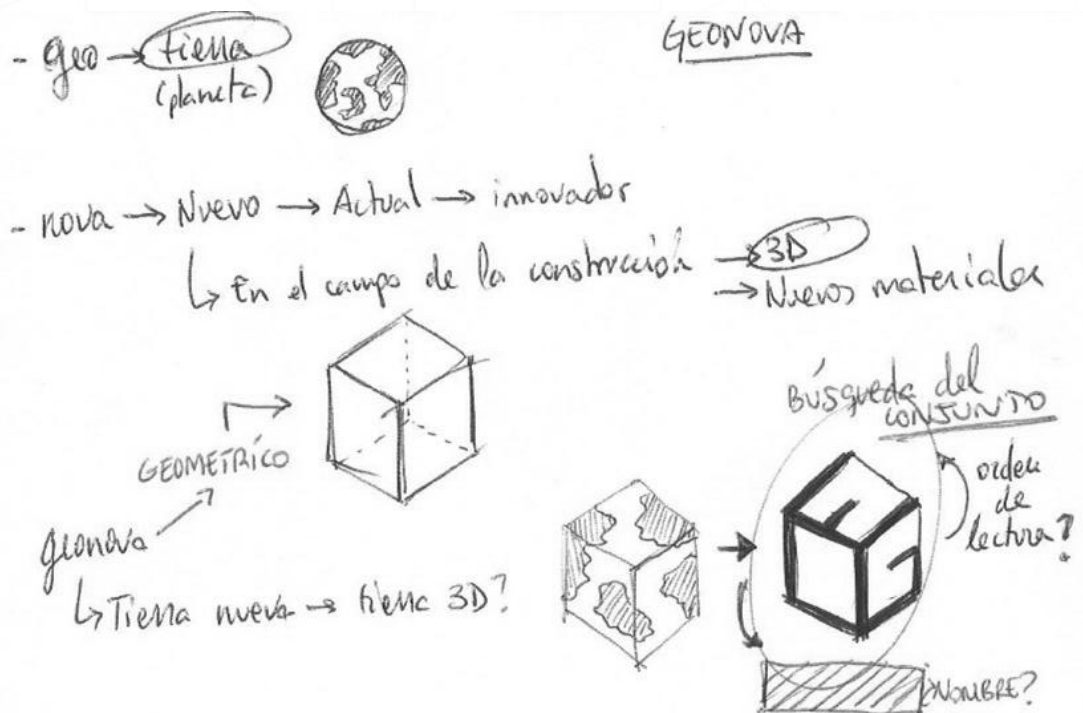 GEONOVA
- geo → tierra
(planeta)
- nova → Nuevo → Actual → innovador
↳ En el campo de la construcción → 3D
→ Nuevos materiales
GEOMETRÍCO
geonova
↳ Tierra nueva → tierra 3D?
BÚSqueda del
CONJUNTO
orden
de
lectura?
NOMBRE?